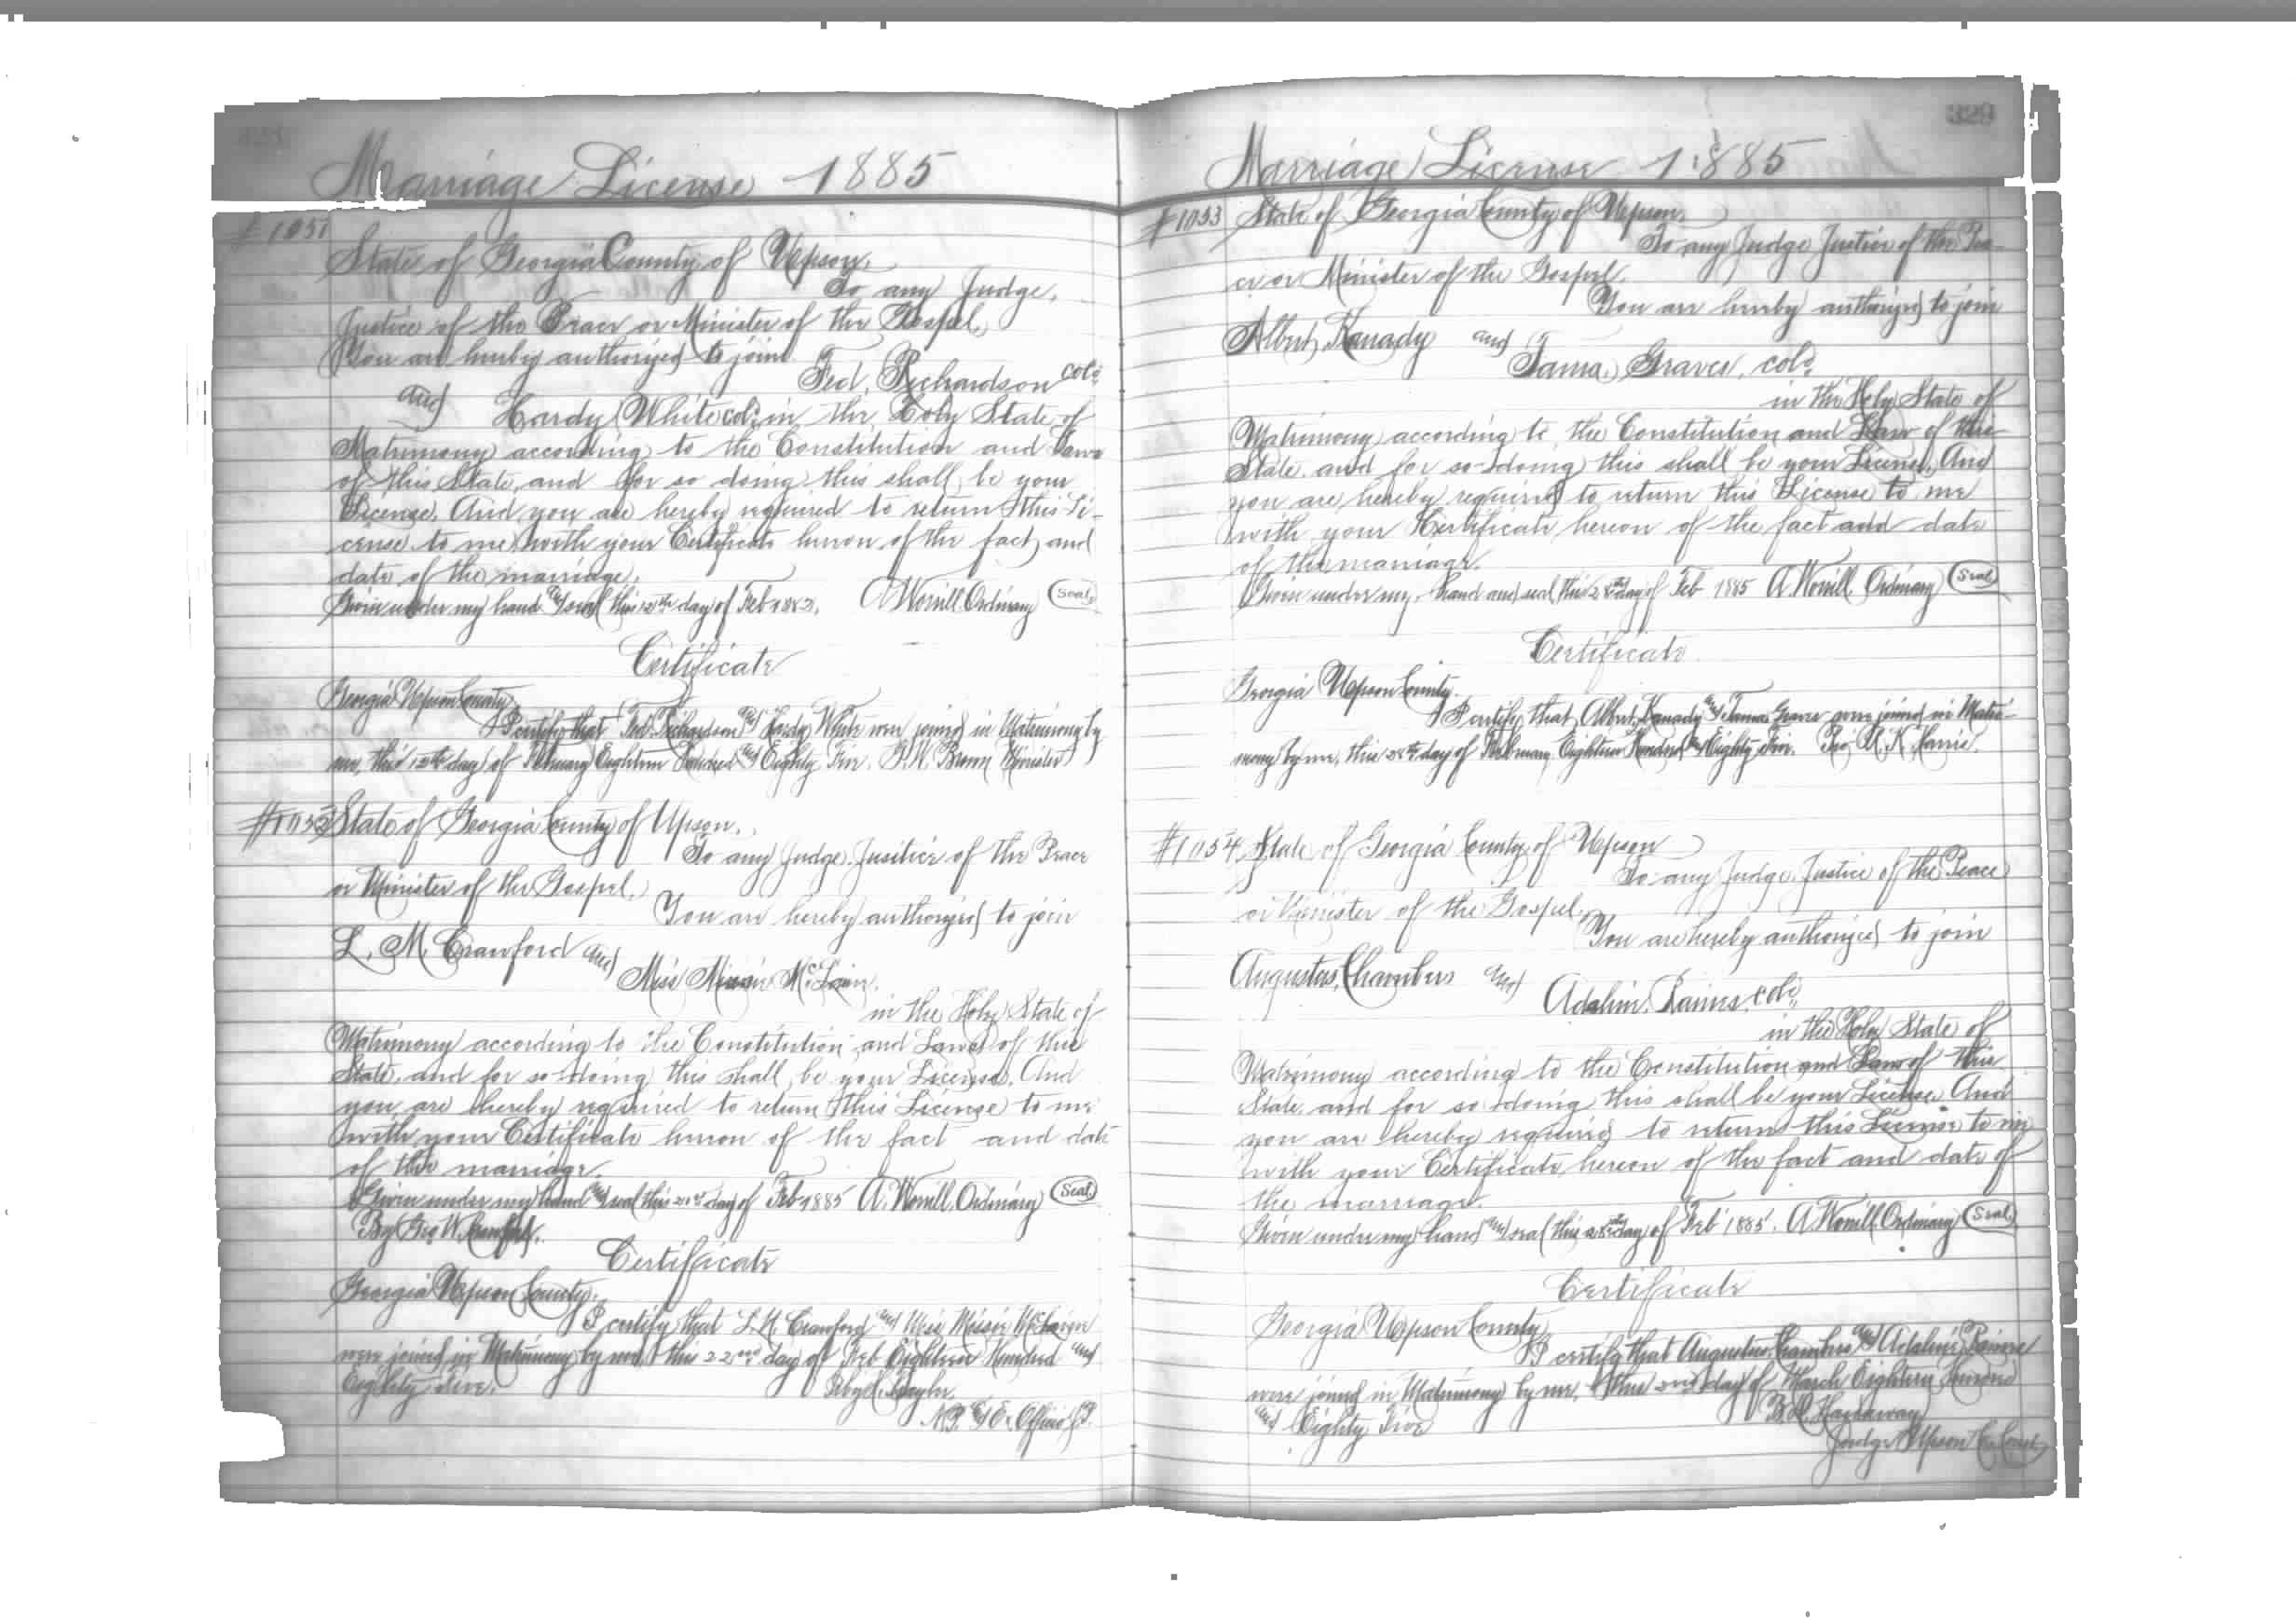 Marriage License 1885
#1051
State of Georgia County of Upson.
To any Judge,
Justice of the Peace or Minister of the Gospel.
You are hereby authorized to join
Fed. Richardson col.
and Hardy White col. in the Holy State of
Matrimony according to the Constitution and Laws
of this State, and for so doing this shall be your
License. And you are hereby required to return this Li-
cense to me with your Certificate hereon of the fact and
date of the marriage.
Given under my hand and seal this 12th day of Feb 1885. A Worrill Ordinary (Seal)
Certificate
Georgia Upson County
I Certify that Fed. Richardson and Hardy White were joined in Matrimony by
me, this 12th day of February Eighteen Hundred and Eighty Five. Brown Minister
#1052 State of Georgia County of Upson.
To any Judge Justice of the Peace
or Minister of the Gospel.
You are hereby authorized to join
L. M. Crawford and
Miss McLain.
in the Holy State of
Matrimony according to the Constitution and Laws of this
State, and for so doing this shall be your License. And
you are hereby required to return this License to me
with your Certificate hereon of the fact and date
of the marriage.
Given under my hand and seal this 21st day of Feb 1885 A. Worrill, Ordinary (Seal)
By Geo W.
Certificate
Georgia Upson County.
I certify that L. M. Crawford and Miss
were joined in Matrimony by me this 22nd day of Feb Eighteen Hundred and
Eighty Five.
N.P. & Ex. Officio J.P.
329
Marriage License 1885
#1053 State of Georgia County of Upson.
To any Judge Justice of the Pea-
ce or Minister of the Gospel.
You are hereby authorized to join
Albert Kanady and
Tama Graves, col.
in the Holy State of
Matrimony according to the Constitution and Laws of this
State. and for so doing this shall be your License. And
you are hereby required to return this License to me
with your Certificate hereon of the fact and date
of the marriage.
Given under my hand and seal this 28th day of Feb 1885 A Worrill Ordinary (Seal)
Certificate
Georgia Upson County.
I Certify that Albert Kanady and Tama Graves were joined in Matri-
mony by me, this 28th day of February Eighteen Hundred and Eighty Five. Harris.
#1054 State of Georgia County of Upson
To any Judge Justice of the Peace
or Minister of the Gospel.
You are hereby authorized to join
Augustus Chambers and
Adaline Raines col.
in the Holy State of
Matrimony according to the Constitution and Laws of this
State. and for so doing this shall be your License. And
you are hereby required to return this License to me
with your Certificate hereon of the fact and date of
the marriage.
Given under my hand and seal this 28th day of Feb 1885. A Worrill Ordinary (Seal)
Certificate
Georgia Upson County
I certify that Augustus Chambers and Adaline Raines
were joined in Matrimony by me, this 2nd day of March Eighteen Hundred
and Eighty Five
Judge Upson